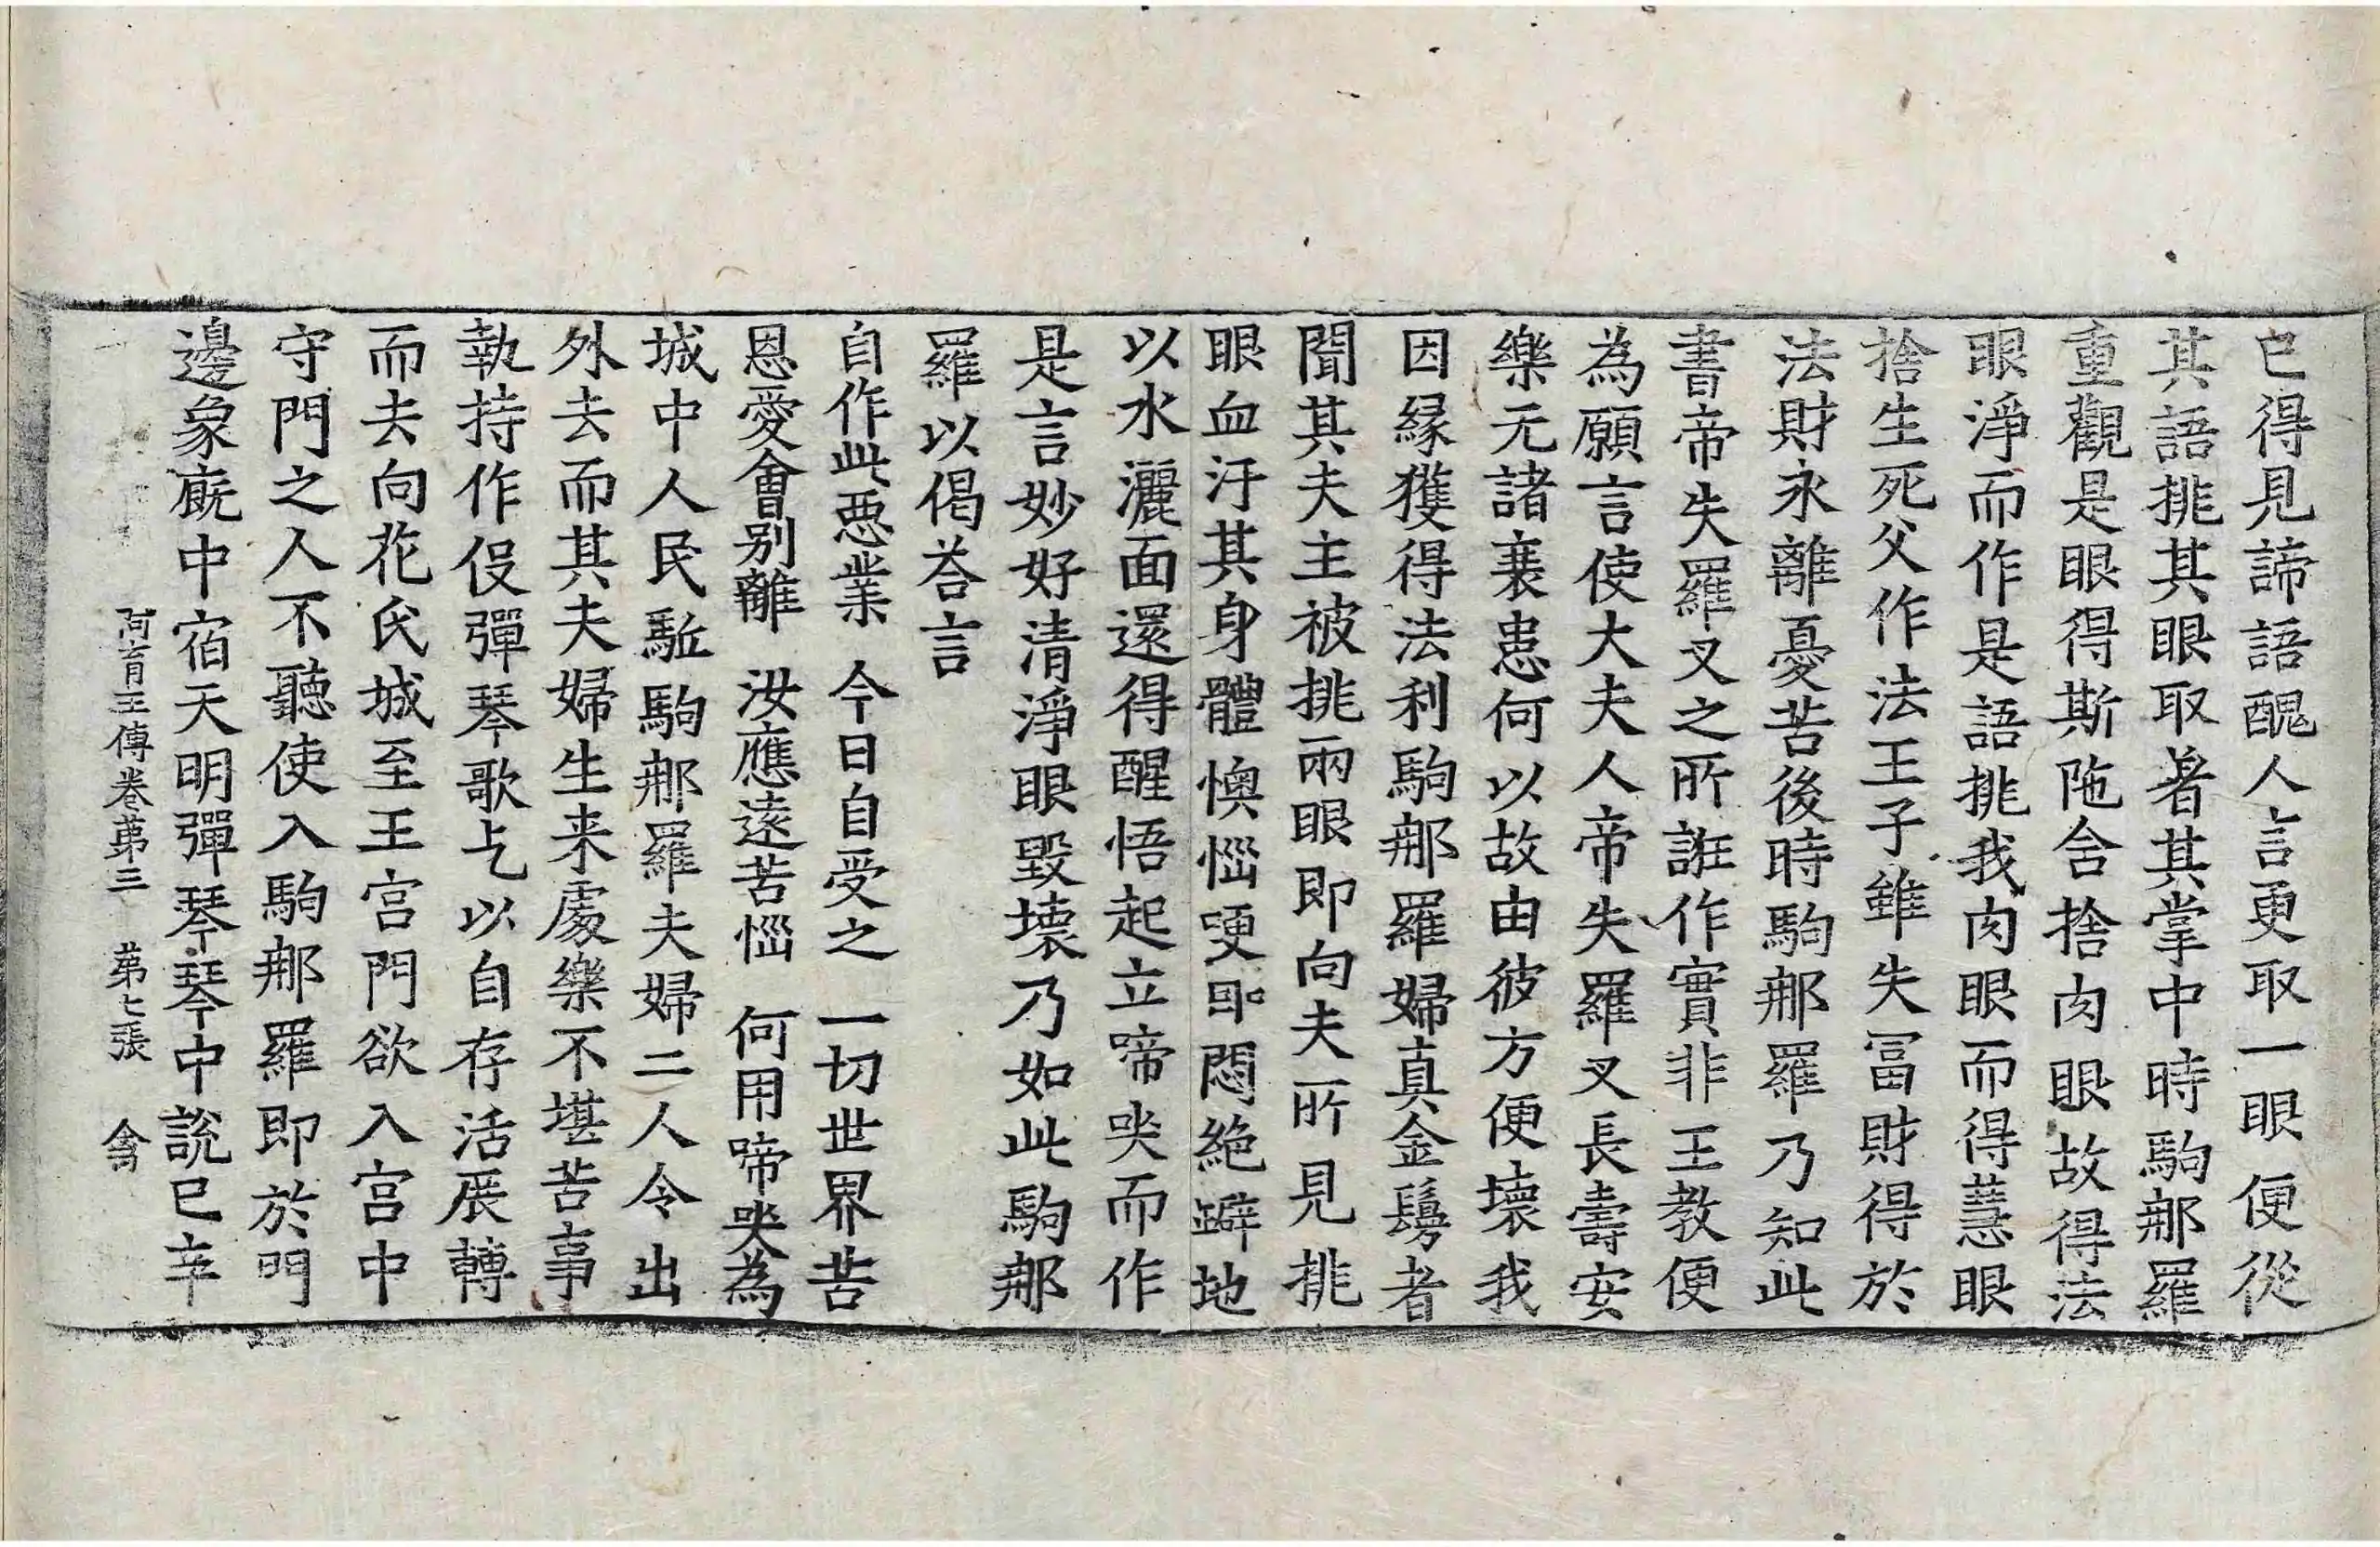 已得見諦語醜人言更取一眼便從
其語挑其眼取著其掌中時駒那羅
重觀是眼得斯陁含捨肉眼故得法
眼淨而作是語挑我肉眼而得慧眼
捨生死父作法王子雖失冨財得於
法財永離憂苦後時駒那羅乃知此
書帝失羅叉之所誑作實非王教便
為願言使大夫人帝失羅叉長壽安
樂无諸衰患何以故由彼方便壞我
因緣獲得法利駒那羅婦真金鬘者
聞其夫主被挑兩眼即向夫所見挑
眼血汙其身體懊惱哽咽悶絕躃地
以水灑面還得醒悟起立啼哭而作
是言妙好清淨眼毀壞乃如此駒那
羅以偈荅言
自作此惡業　今日自受之　一切世界苦
恩愛會別離　汝應遠苦惱　何用啼哭為
城中人民駈駒那羅夫婦二人令出
外去而其夫婦生来處樂不堪苦事
執持作伎彈琴歌乞以自存活展轉
而去向花氏城至王宮門欲入宮中
守門之人不聽使入駒那羅即於門
邊象廐中宿天明彈琴琴中說已辛
阿育王傳卷第三　第七張　禽